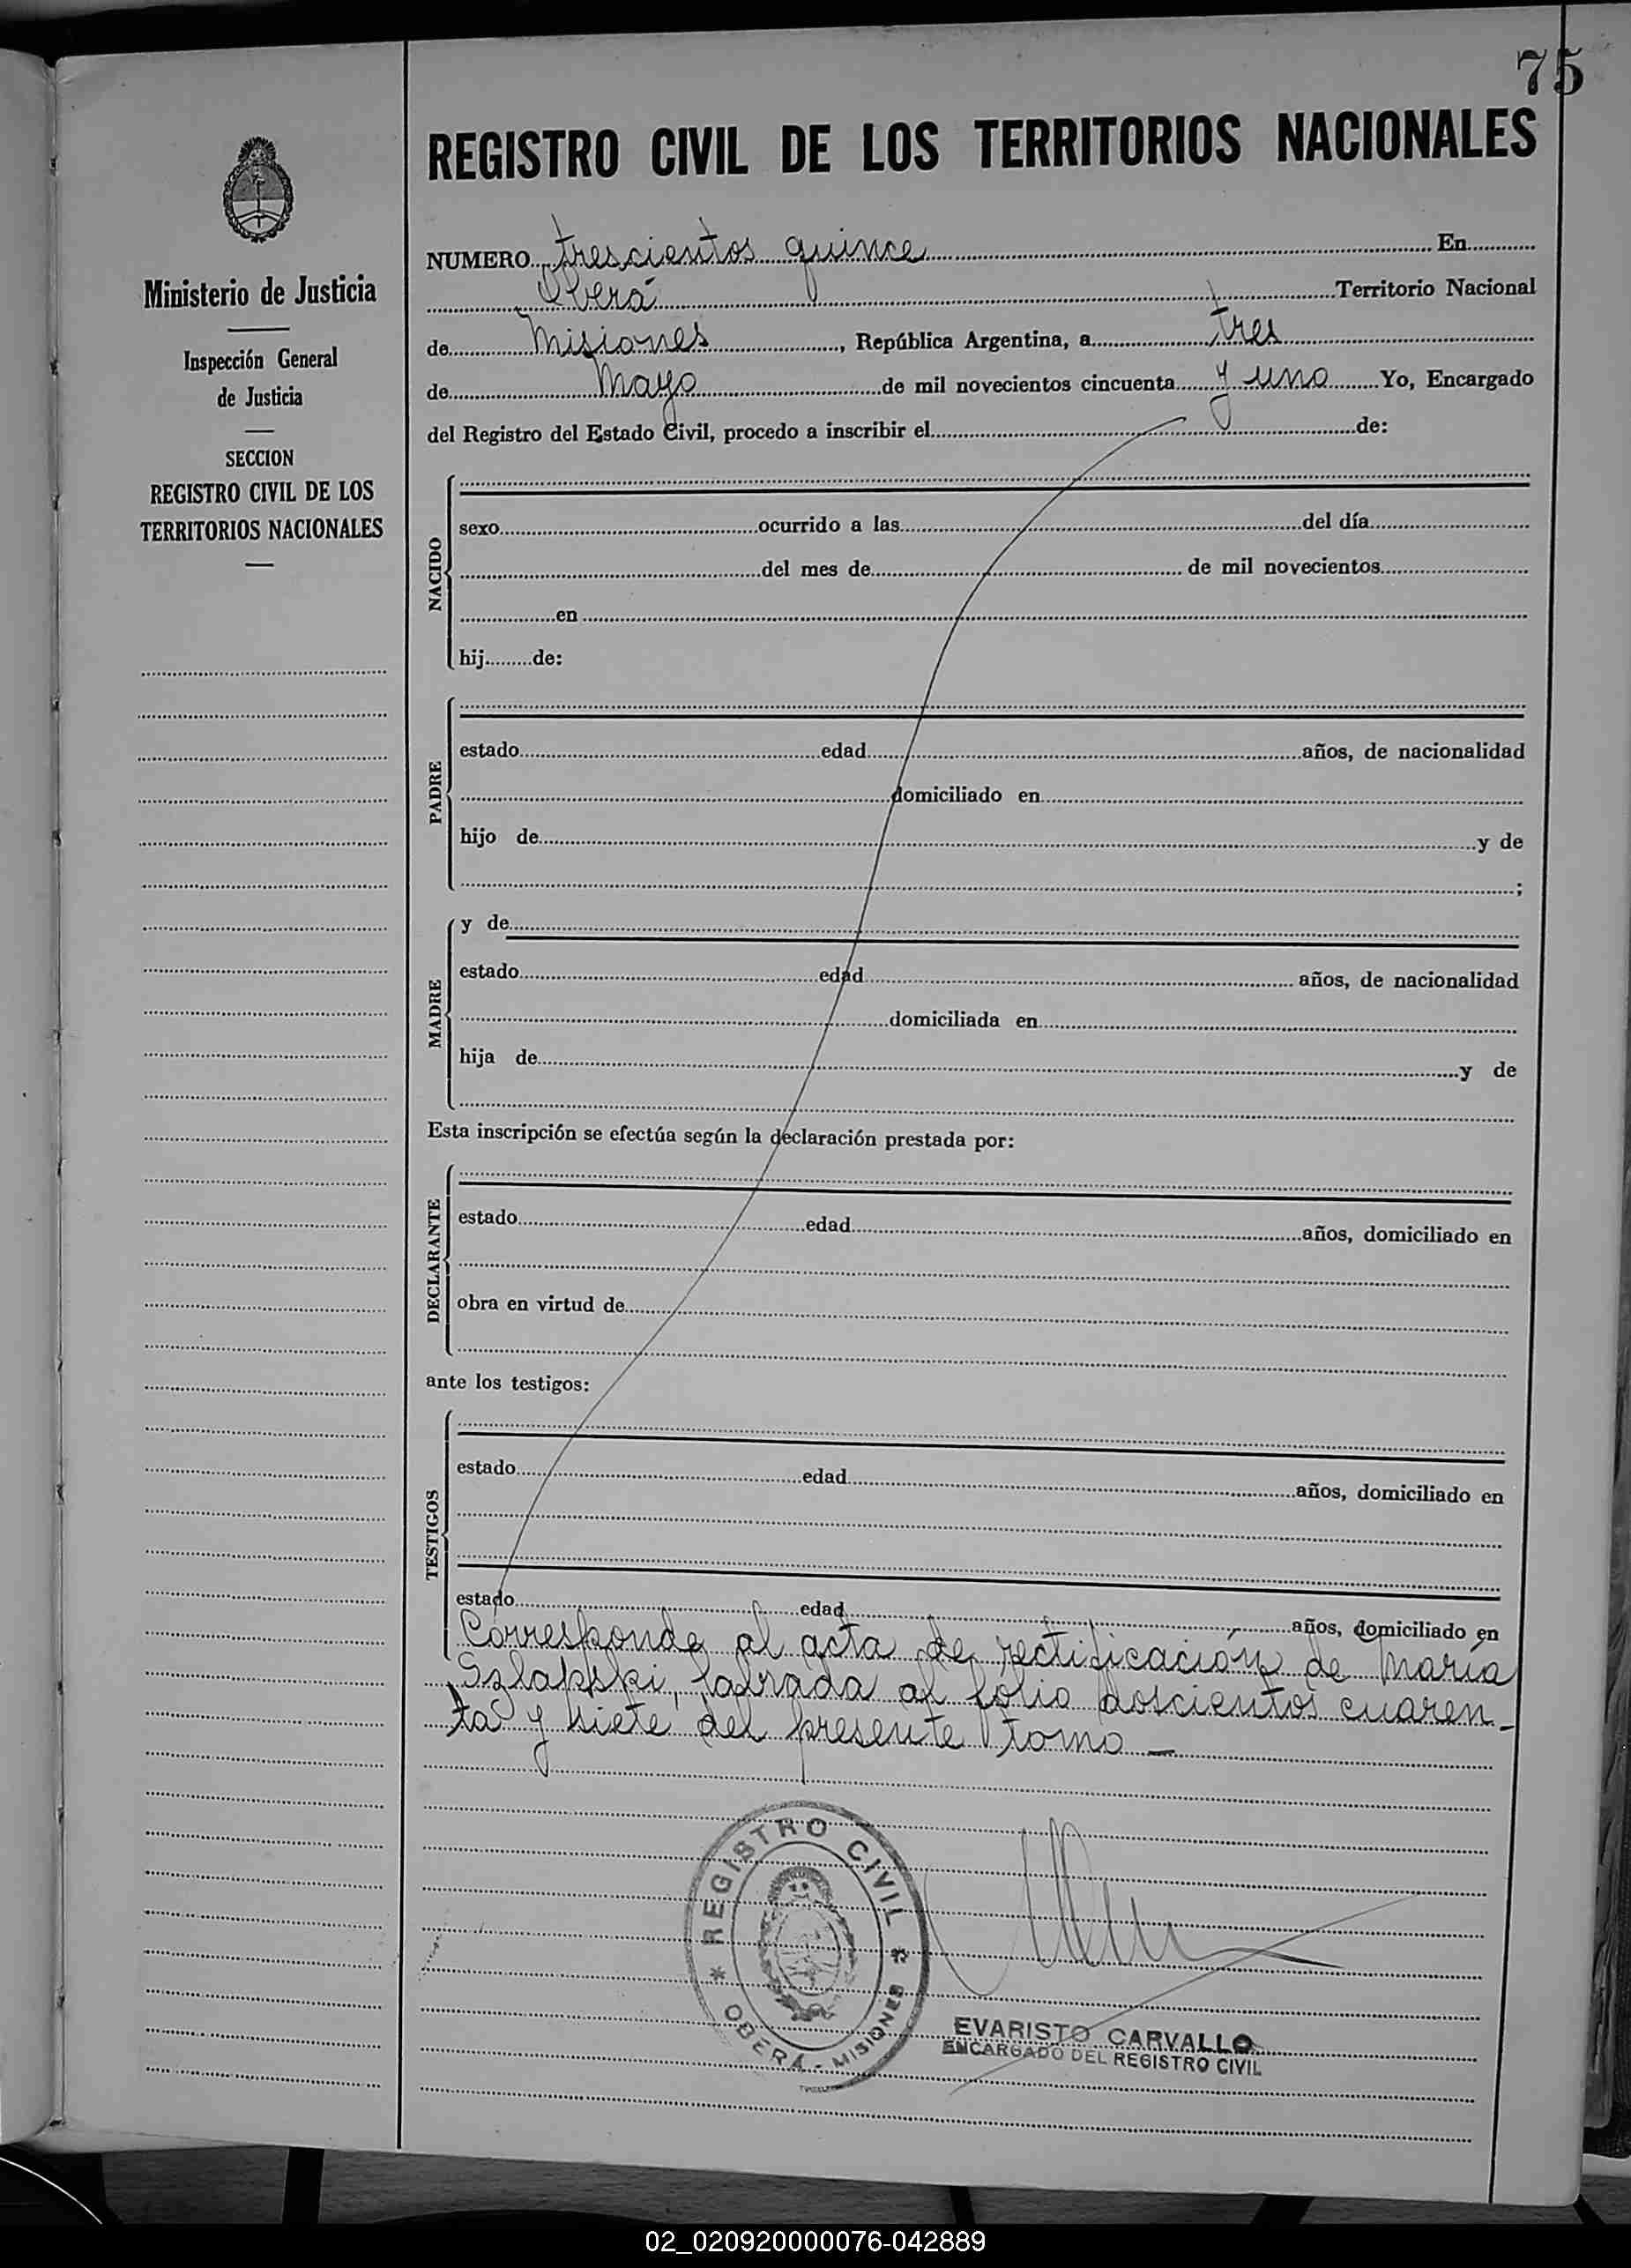 75
REGISTRO CIVIL DE LOS TERRITORIOS NACIONALES
Ministerio de Justicia
Inspección General
de Justicia
SECCION
REGISTRO CIVIL DE LOS
TERRITORIOS NACIONALES
NUMERO trescientos quince En
Oberá Territorio Nacional
de Misiones, República Argentina, a tres
de Mayo de mil novecientos cincuenta y uno Yo, Encargado
del Registro del Estado Civil, procedo a inscribir el de:
NACIDO
sexo ocurrido a las del día
del mes de de mil novecientos
en
hij de:
PADRE
estado edad años, de nacionalidad
domiciliado en
hijo de y de
;
MADRE
y de
estado edad años, de nacionalidad
domiciliada en
hija de y de
Esta inscripción se efectúa según la declaración prestada por:
DECLARANTE
estado edad años, domiciliado en
obra en virtud de
ante los testigos:
TESTIGOS
estado edad años, domiciliado en
estado edad años, domiciliado en
Corresponde al acta de rectificación de María
Szlapski, labrada al folio doscientos cuaren-
ta y siete del presente tomo —
REGISTRO CIVIL
OBERÁ - MISIONES
EVARISTO CARVALLO
ENCARGADO DEL REGISTRO CIVIL
02_020920000076-042889